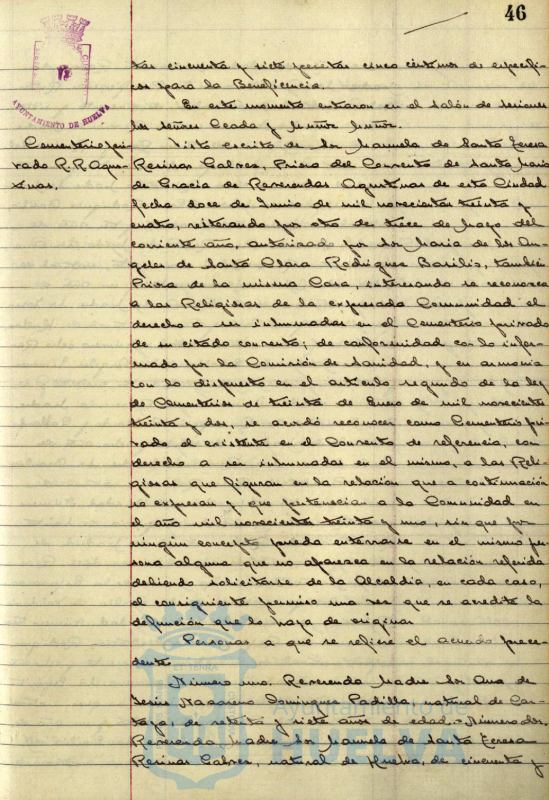 46
AYUNTAMIENTO DE HUELVA
tas cincuenta y siete pesetas cinco céntimos de específi-
cos para la Beneficencia.
En este momento entraron en el salón de sesiones
los señores Coada y Muñoz Muñoz.
Cementerio pri-
vado R.R. Agus-
tinas.
Visto escrito de Sor Manuela de Santa Teresa
Resinas Galvez, Priora del Convento de Santa Maria
de Gracia de Reverendas Agustinas de esta Ciudad
fecha doce de Junio de mil novecientos treinta y
cuatro, reiterando por otro de trece de Mayo del
corriente año, autorizado por Sor Maria de los An-
geles de Santa Clara Rodriguez Barilis, también
Priora de la misma Casa, interesando se reconozca
a las Religiosas de la expresada Comunidad el
derecho a ser inhumadas en el Cementerio privado
de su citado convento; de conformidad con lo infor-
mado por la Comisión de Sanidad, y en armonia
con lo dispuesto en el artículo segundo de la ley
de Cementerios de treinta de Enero de mil novecientos
treinta y dos, se acordó reconocer como Cementerio pri-
vado el existente en el Convento de referencia, con
derecho a ser inhumadas en el mismo, a las Reli-
giosas que figuran en la relación que a continuación
se expresan y que pertenecian a la Comunidad en
el año mil novecientos treinta y uno, sin que por
ningún concepto pueda enterrarse en el mismo per-
sona alguna que no aparezca en la relación referida
debiendo solicitarse de la Alcaldía, en cada caso,
el consiguiente permiso una vez que se acredite la
defunción que lo haya de originar.
Personas a que se refiere el acuerdo prece-
dente
Número uno. Reverenda Madre Sor Ana de
Jesús Nazareno Dominguez Padilla, natural de Car-
taya, de setenta y siete años de edad.- Número dos,
Reverenda Madre Sor Manuela de Santa Teresa
Resinas Galvez, natural de Huelva, de cincuenta y
Ayuntamiento de
HUELVA